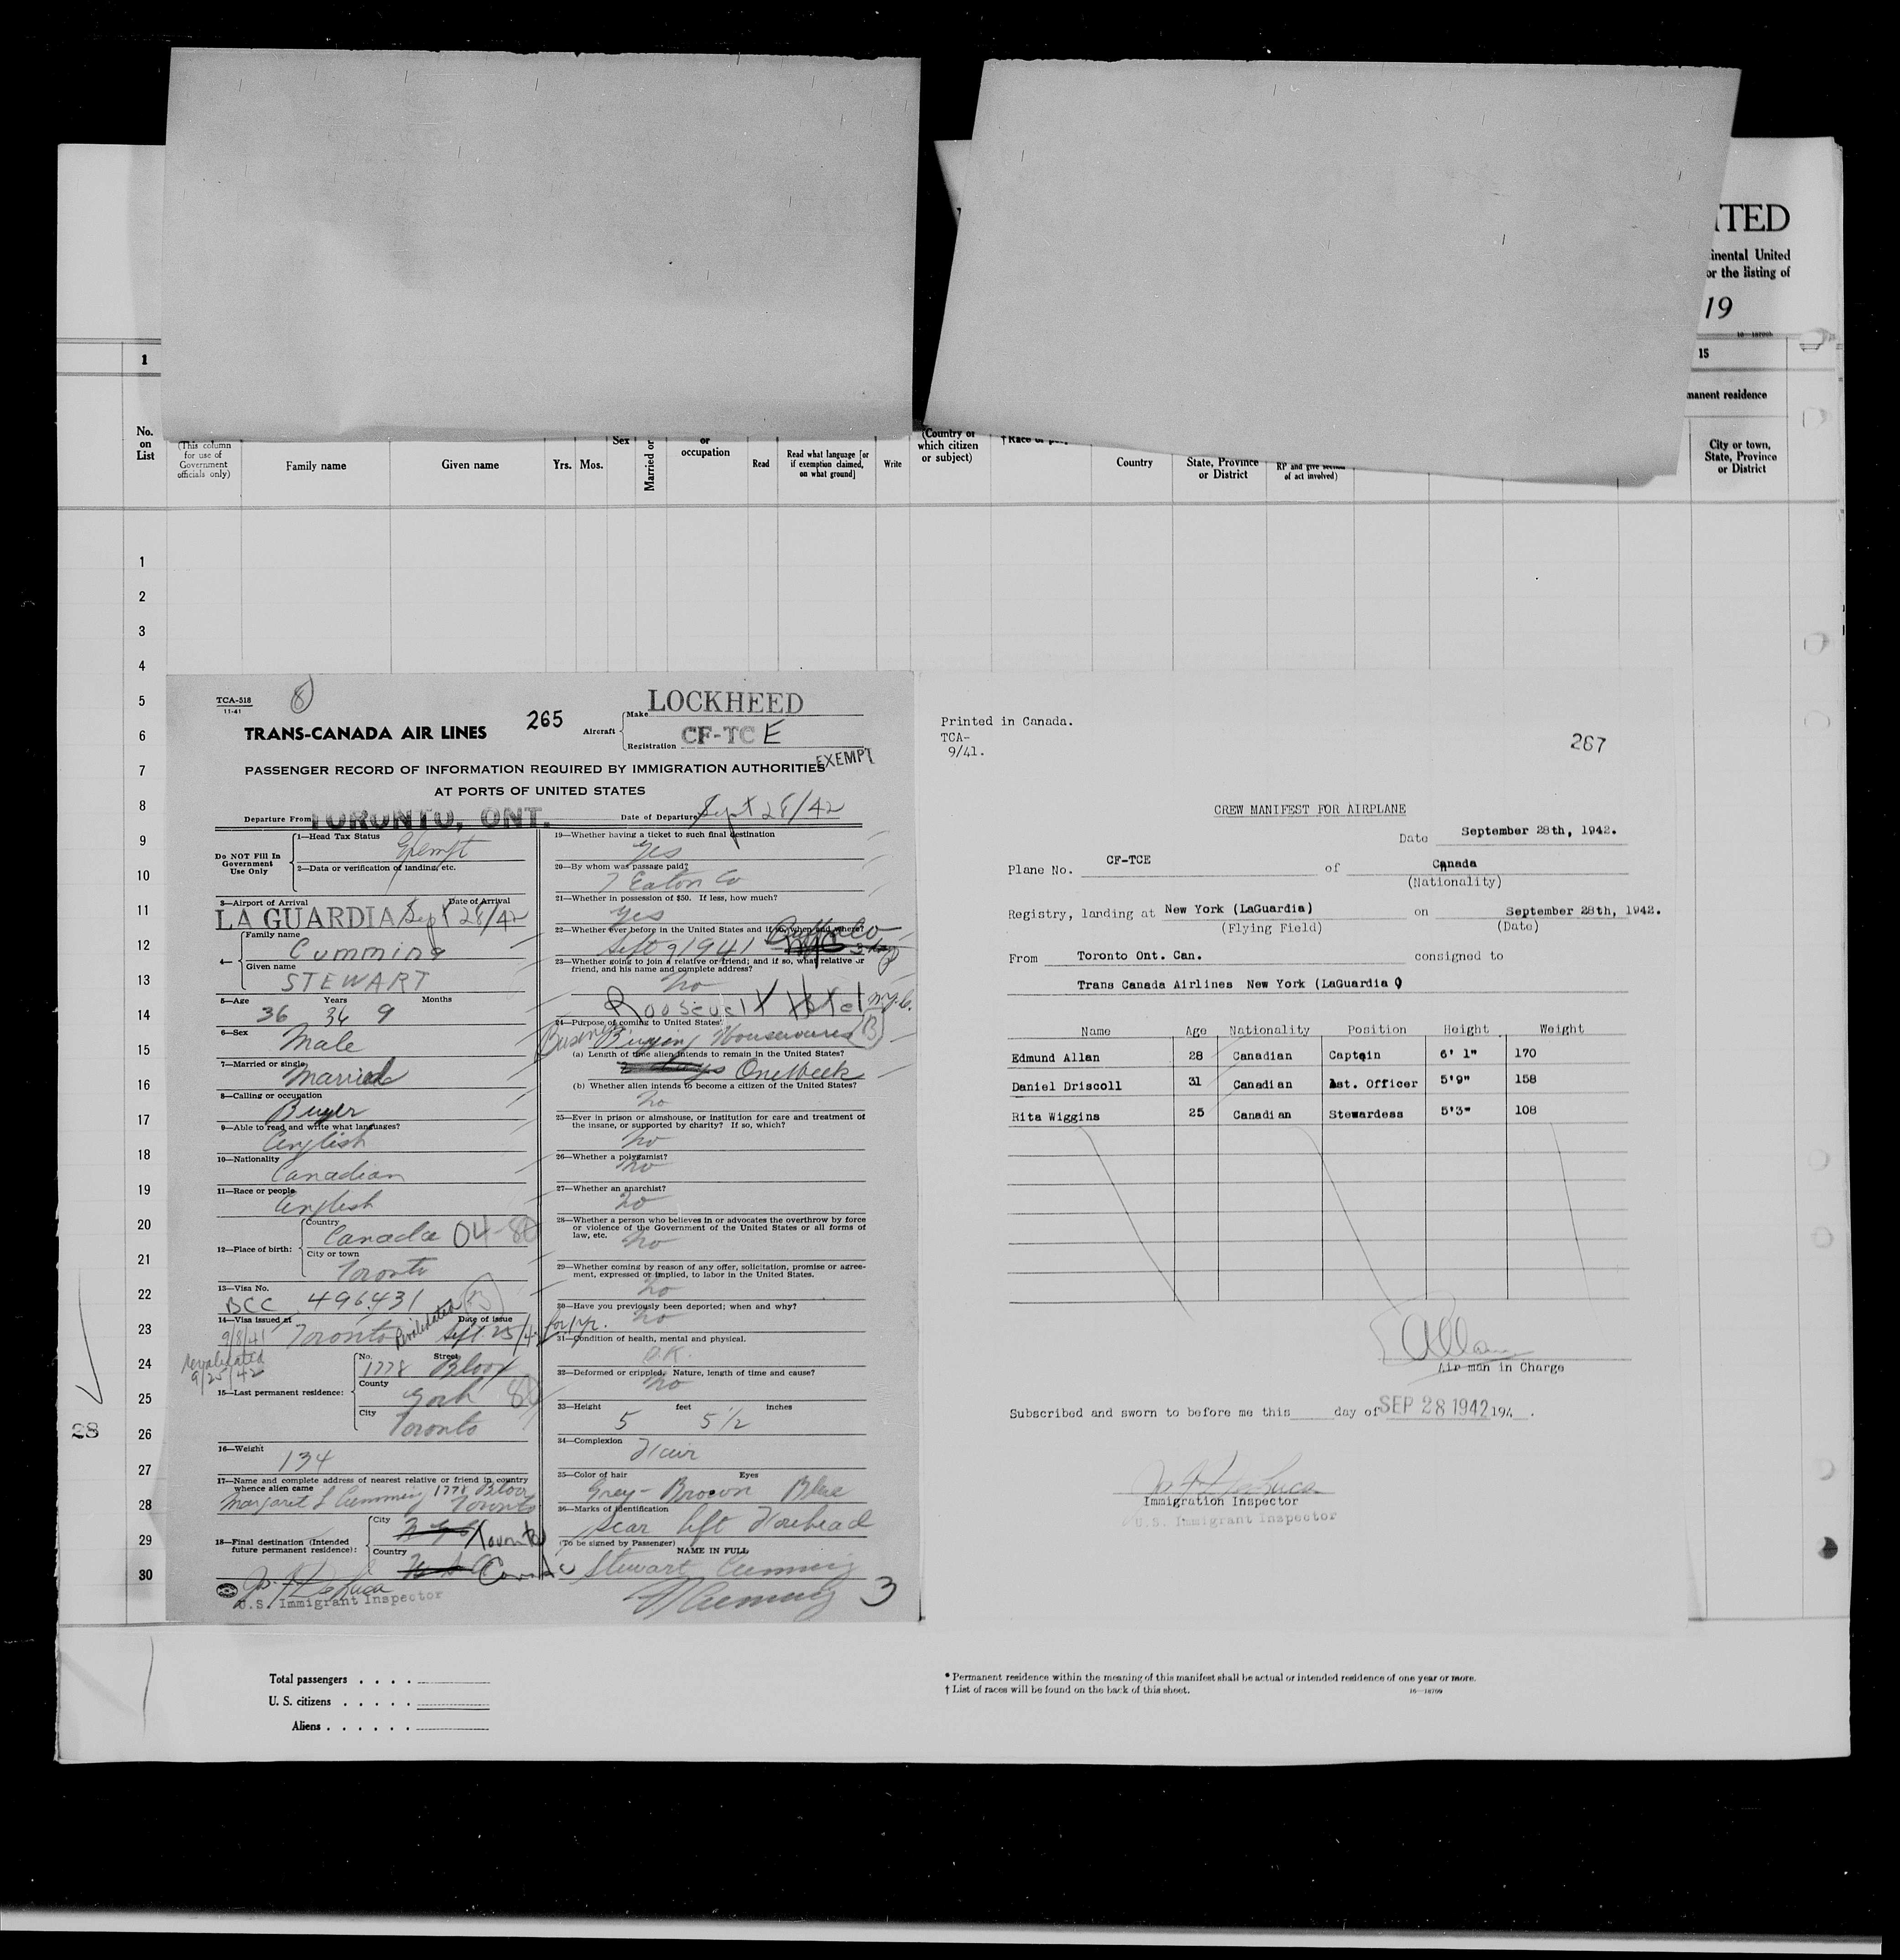 ITED
inental United
or the listing of
19
1
15
manent residence
No.
on
List
(This column
for use of
Government
officials only)
Family name
Given name
Yrs.
Mos.
Sex
Married or
or
occupation
Read
Read what language [or
if exemption claimed,
on what ground]
Write
(Country of
which citizen
or subject)
Country
State, Province
or District
RP and give section
of act involved)
City or town,
State, Province
or District
1
2
3
4
5
6
7
8
9
10
11
12
13
14
15
16
17
18
19
20
21
22
23
24
25
26
27
28
29
30
28
TCA-518
11-41
8
TRANS-CANADA AIR LINES
265
Aircraft
Make LOCKHEED
Registration CF-TC E
EXEMPT
PASSENGER RECORD OF INFORMATION REQUIRED BY IMMIGRATION AUTHORITIES
AT PORTS OF UNITED STATES
Departure From TORONTO, ONT.
Date of Departure Sept 28/42
Do NOT Fill In
Government
Use Only
1—Head Tax Status
Exempt
2—Data or verification of landing, etc.
3—Airport of Arrival Date of Arrival
LA GUARDIA Sept 28/42
4—
Family name
Cumming
Given name
STEWART
5—Age Years Months
36 36 9
6—Sex
Male
7—Married or single
Married
8—Calling or occupation
Buyer
9—Able to read and write what languages?
English
10—Nationality
Canadian
11—Race or people
English
12—Place of birth:
Country
Canada 04-80
City or town
Toronto
13—Visa No.
BCC 496431 B
14—Visa issued at Date of issue
9/8/41 Toronto Revalidated Sept 25/42 for 1 yr.
revalidated
9/25/42
15—Last permanent residence:
No. Street
1778 Bloor
County
York 80
City
Toronto
16—Weight
134
17—Name and complete address of nearest relative or friend in country
whence alien came
Margaret L Cumming 1778 Bloor
Toronto
18—Final destination (Intended
future permanent residence):
City
Toronto
Country
Canada
U.S. Immigrant Inspector
19—Whether having a ticket to such final destination
Yes
20—By whom was passage paid?
T Eaton Co
21—Whether in possession of $50. If less, how much?
Yes
22—Whether ever before in the United States and if so, when and where?
Sept 9 1941 Buffalo
23—Whether going to join a relative or friend; and if so, what relative or
friend, and his name and complete address?
no
Roosevelt Hotel N.Y.C.
24—Purpose of coming to United States?
Business Buying Housewares B
(a) Length of time alien intends to remain in the United States?
One Week
(b) Whether alien intends to become a citizen of the United States?
no
25—Ever in prison or almshouse, or institution for care and treatment of
the insane, or supported by charity? If so, which?
no
26—Whether a polygamist?
no
27—Whether an anarchist?
no
28—Whether a person who believes in or advocates the overthrow by force
or violence of the Government of the United States or all forms of
law, etc.
no
29—Whether coming by reason of any offer, solicitation, promise or agree-
ment, expressed or implied, to labor in the United States.
no
30—Have you previously been deported; when and why?
no
31—Condition of health, mental and physical.
O.K.
32—Deformed or crippled. Nature, length of time and cause?
no
33—Height feet inches
5 5 1/2
34—Complexion
Fair
35—Color of hair Eyes
Grey-Brown Blue
36—Marks of identification
Scar left Forehead
(To be signed by Passenger)
NAME IN FULL
Stewart Cumming
S Cumming
3
Printed in Canada.
TCA-
9/41.
267
CREW MANIFEST FOR AIRPLANE
Date September 28th, 1942.
Plane No. CF-TCE of Canada
(Nationality)
Registry, landing at New York (LaGuardia) on September 28th, 1942.
(Flying Field) (Date)
From Toronto Ont. Can. consigned to
Trans Canada Airlines New York (LaGuardia )
Name Age Nationality Position Height Weight
Edmund Allan 28 Canadian Captain 6' 1" 170
Daniel Driscoll 31 Canadian 1st. Officer 5'9" 158
Rita Wiggins 25 Canadian Stewardess 5'3" 108
Allan
Air man in Charge
Subscribed and sworn to before me this day of SEP 28 1942 194 .
Immigration Inspector
U.S. Immigrant Inspector
Total passengers . . . .
U. S. citizens . . . . .
Aliens . . . . . .
* Permanent residence within the meaning of this manifest shall be actual or intended residence of one year or more.
† List of races will be found on the back of this sheet.
16—18709